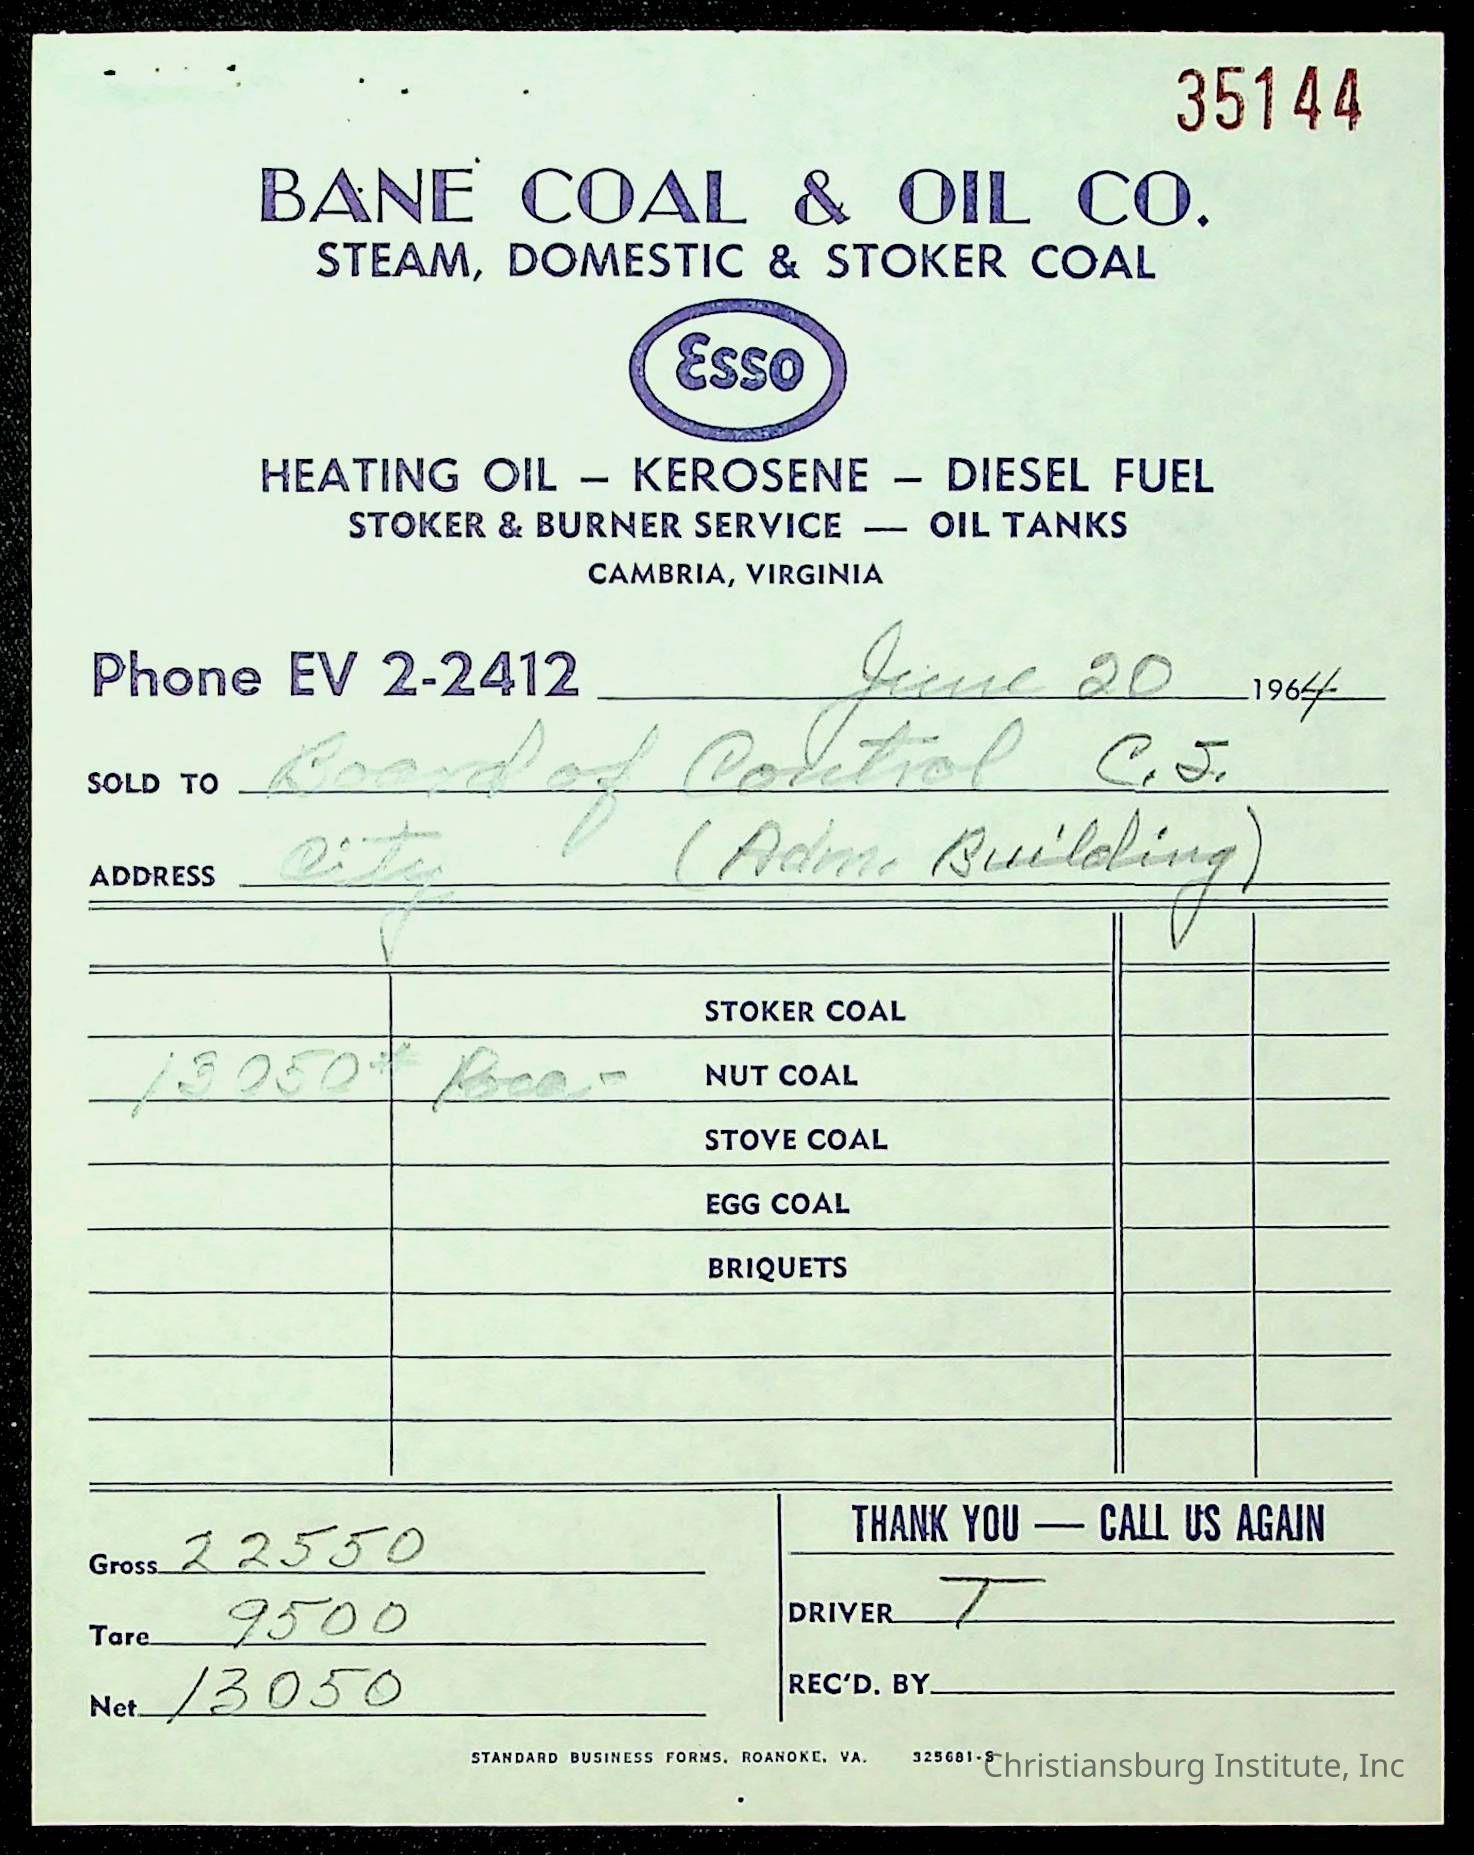 35144
BANE COAL & OIL CO.
STEAM, DOMESTIC & STOKER COAL
Esso
HEATING OIL — KEROSENE — DIESEL FUEL
STOKER & BURNER SERVICE — OIL TANKS
CAMBRIA, VIRGINIA
Phone EV 2-2412 June 20 1964
SOLD TO Board of Control C.I.
ADDRESS City (Adm. Building)
STOKER COAL
13050# Poca- NUT COAL
STOVE COAL
EGG COAL
BRIQUETS
THANK YOU — CALL US AGAIN
Gross 22550
Tare 9500
Net 13050
DRIVER T
REC'D. BY
STANDARD BUSINESS FORMS, ROANOKE, VA. 325681-S
Christiansburg Institute, Inc